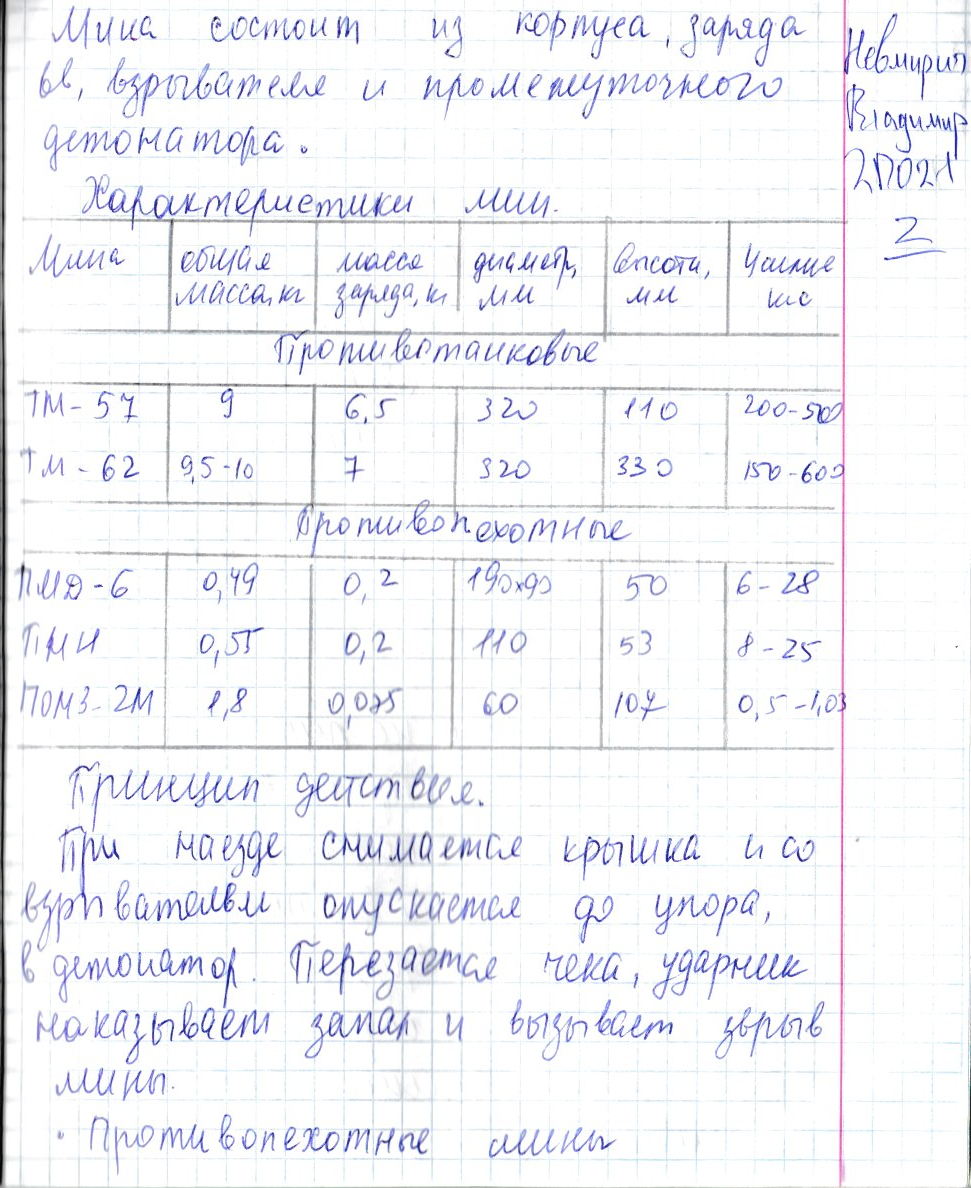 Мина состоит из корпуса, заряда
вв, взрывателя и промежуточного
детонатора.
Невмирич
Владимир
2П021
2
Характеристики мин.
Мина общая масса диаметр, высота, Усилие
масса, кг заряда, кг мм мм кгс
Противотанковые
ТМ-57 9 6,5 320 110 200-500
ТМ-62 9,5-10 7 320 330 150-600
Противопехотные
ПМД-6 0,49 0,2 190х90 50 6-28
ПМН 0,55 0,2 110 53 8-25
ПОМЗ-2М 1,8 0,075 60 107 0,5-1,03
Принцип действия.
При наезде снимается крышка и со
взрывателем опускается до упора,
в детонатор. Перезается чека, ударник
наказывает запал и вызывает зврыв
мины.
· Противопехотные мины